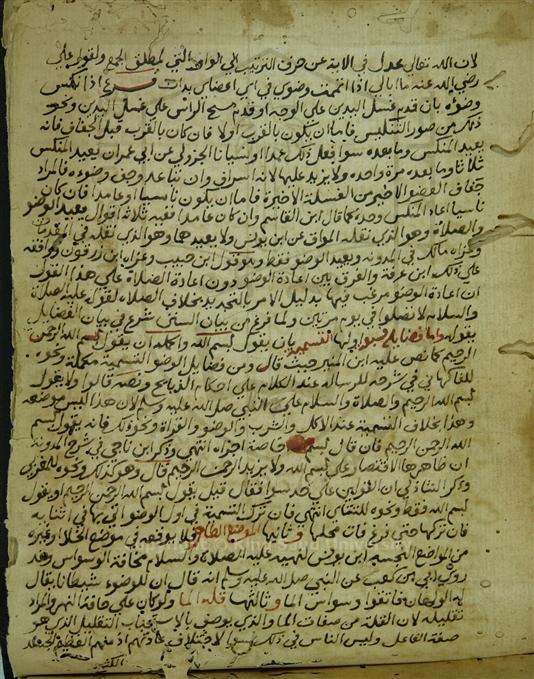 لان الله تعالى عدل في الاية عن حرف الترتيب الي الواو التي لمطلق الجمع ولقول علي
رضي الله عنه ما ابالي اذا اتممت وضوي في اي اعضاي بدات فرع اذا نكس
وضوءه بان قدم غسل اليدين علي الوجه او قدم مسح الراس علي غسل اليدين ونحو
ذلك من صور التنكيس فاما ان يكون بالقرب اولا فان كان بالقرب قبل الجفاف فانه
يعيد المنكس وما بعده سوا فعل ذلك عمدا او نسيانا الجزولي عن ابي عمران يعيد المنكس
ثلاثا وما بعده مرة واحدة ولا يزيد عليها لانه اسراف وان تباعد وجف وضوءه فالمراد
جفاف العضو الاخير من الغسلة الاخيرة فاما ان يكون ناسيا او عامدا فان كان
ناسيا اعاد المنكس وحده كما قال ابن القاسم وان كان عامدا ففيه ثلاثة اقوال يعيد الوضو
والصلاة وهو الذي نقله المواق عن ابن يونس ولا يعيدهما وهو الذي نقله في المقدمات
وعزاه مالك في المدونة ويعيد الوضو فقط وهو قول ابن حبيب وعزاه ابن زرقون ووافقه
علي ذلك ابن عرفة والفرق بين اعادة الوضو دون اعادة الصلاة علي هذا القول
ان اعادة الوضو مرغب فيها بدليل الامر بالتجديد بخلاف الصلاة لقوله عليه الصلاة
والسلام لا تصلوا في يوم مرتين ولما فرغ من بيان السنن شرع في بيان الفضايل
بقوله واما فضايله فسبع اولها التسمية بان يقول بسم الله واكمله ان يقول بسم الله الرحمن
الرحيم كما نص عليه ابن المنير حيث قال ومن فضايل الوضو التسمية مكملة ونحوه
للفاكهاني في شرحه للرسالة عند الكلام علي احكام الذبايح ونصه قالوا ولا يقول
بسم الله الرحيم والصلاة والسلام علي النبي صلي الله عليه وسلم لان هذا ليس موضعه
وهذا بخلاف التسمية عند الاكل والشرب والوضو والقراة ونحو ذلك فانه يقول بسم
الله الرحمن الرحيم فان قال بسم الله خاصة اجزاه انتهي وذكر ابن ناجي في شرح المدونة
ان ظاهرها الاقتصار علي بسم الله ولا يزيد الرحمن الرحيم قال وهو كذلك ونحوه
وذكر التتاءي ان القولين علي حد سوا فقال قيل يقول بسم الله الرحمن الرحيم او يقول
بسم الله فقط ونحوه للتتاءي انتهي فان ترك التسمية في اول الوضو اتي بها في اثنايه
فان تركها حتي فرغ فات محلها وثانيها الموضع الطاهر فلا يوقعه في موضع الخلا وغيره
من المواضع النجسة ابن يونس لنهيه عليه الصلاة والسلام مخافة الوسواس وقد
روي ابي بن كعب عن النبي صلي الله عليه وسلم انه قال ان للوضوء شيطانا يقال
له الولهان فاتقوا وسواس الما وثالثها قلة الما ولو كان علي حافة النهر والمراد
تقليله لان القلة من صفات الما والذي يوصف بالاستحباب التقليل الذي هو
صفة الفاعل وليس الناس في ذلك سوا لاختلاف عادتهم اذ منهم